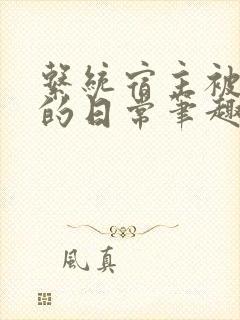 繫統宿主被
的日常筆趣
風真